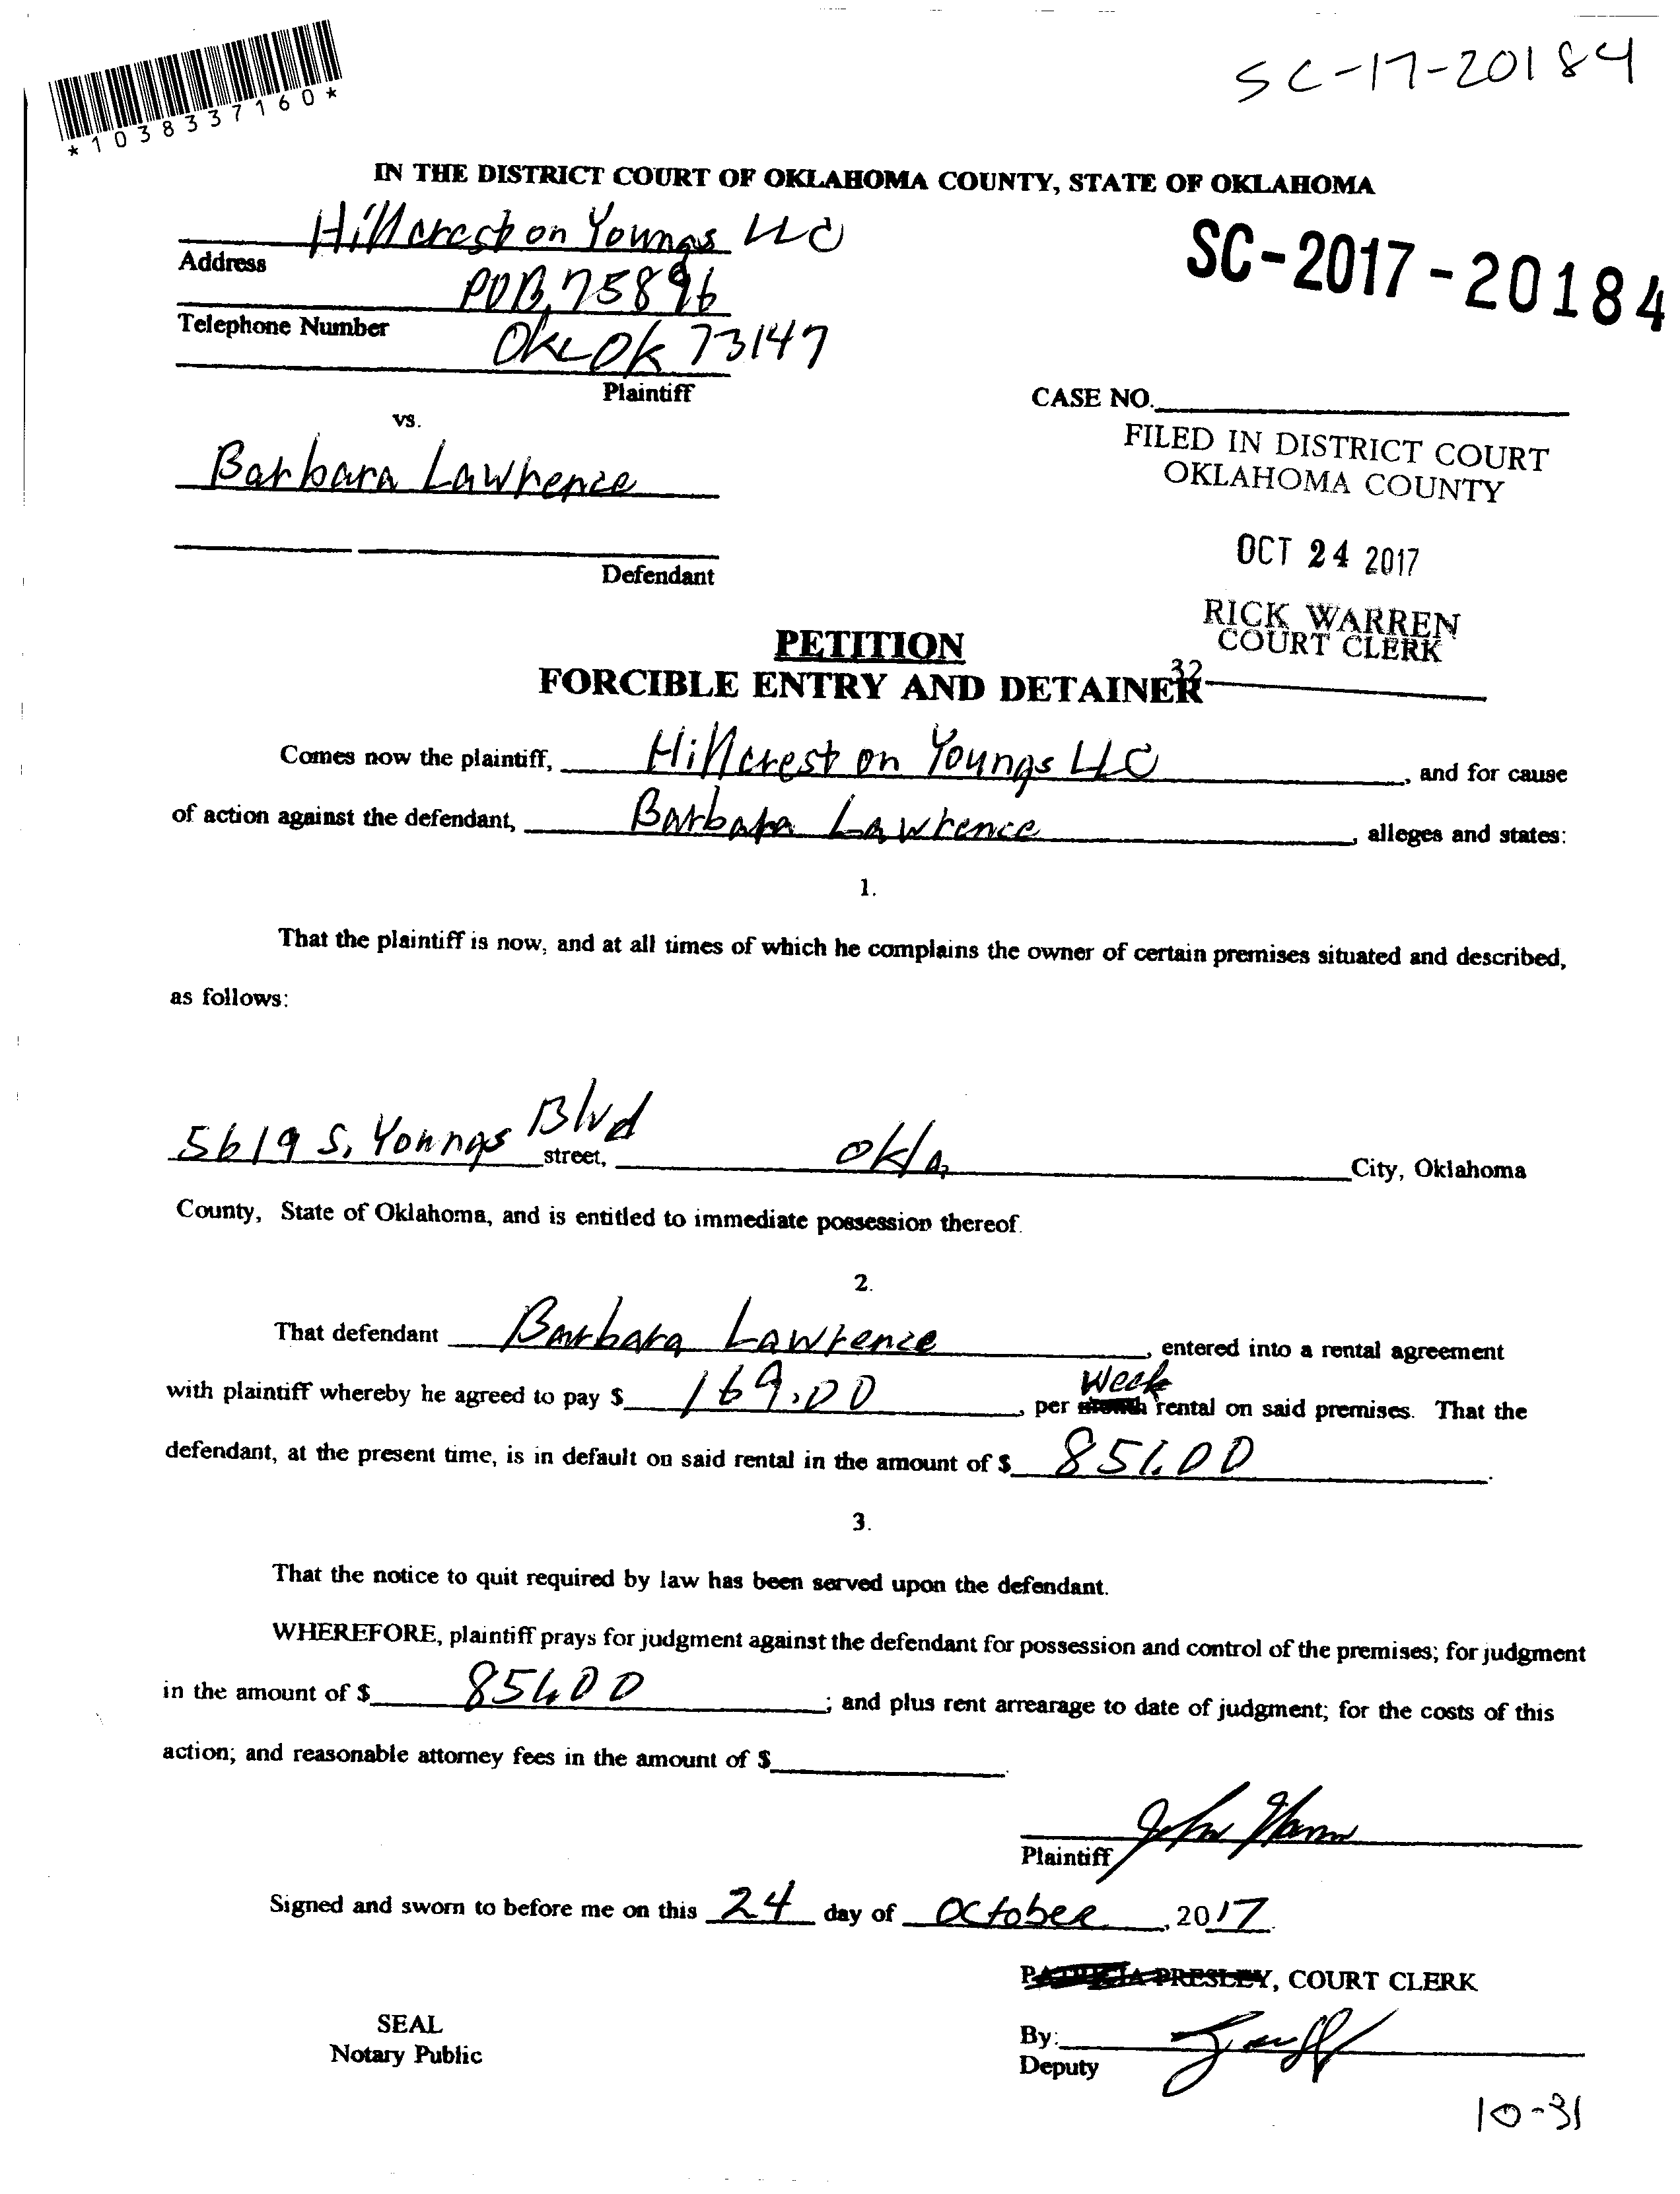 *1038337160*
SC-17-20184
IN THE DISTRICT COURT OF OKLAHOMA COUNTY, STATE OF OKLAHOMA
Hillcrest on Youngs LLC
SC-2017-20184
Address
POB 75896
Telephone Number
OKC OK 73147
Plaintiff
CASE NO.
vs.
FILED IN DISTRICT COURT
OKLAHOMA COUNTY
Barbara Lawrence
OCT 24 2017
Defendant
RICK WARREN
COURT CLERK
PETITION
32
FORCIBLE ENTRY AND DETAINER
Comes now the plaintiff, Hillcrest on Youngs LLC, and for cause
of action against the defendant, Barbara Lawrence, alleges and states:
1.
That the plaintiff is now, and at all times of which he complains the owner of certain premises situated and described,
as follows:
5619 S. Youngs Blvd street, Okla. City, Oklahoma
County, State of Oklahoma, and is entitled to immediate possession thereof.
2.
That defendant Barbara Lawrence, entered into a rental agreement
with plaintiff whereby he agreed to pay $ 169.00, per month week rental on said premises. That the
defendant, at the present time, is in default on said rental in the amount of $ 851.00.
3.
That the notice to quit required by law has been served upon the defendant.
WHEREFORE, plaintiff prays for judgment against the defendant for possession and control of the premises; for judgment
in the amount of $ 851.00; and plus rent arrearage to date of judgment; for the costs of this
action; and reasonable attorney fees in the amount of $.
Plaintiff
Signed and sworn to before me on this 24 day of October, 2017.
PATRICIA PRESLEY, COURT CLERK
SEAL
Notary Public
By:
Deputy
10-31